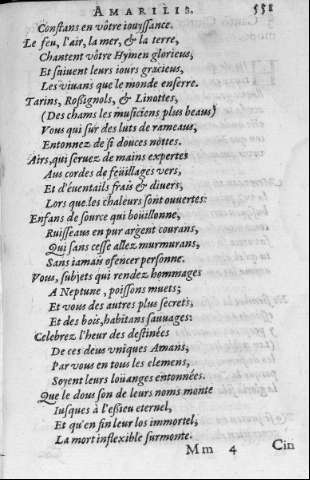 AMARILIS. 558
Constans en vôtre iouyssance.
Le feu, l'air, la mer, & la terre,
Chantent vôtre Hymen glorieus,
Et suiuent leurs iours gracieus,
Les viuans que le monde enserre.
Tarins, Roßignols, & Linottes,
(Des chams les musiciens plus beaus)
Vous qui sur des luts de rameaus,
Entonnez de si douces nottes.
Airs, qui seruez de mains expertes
Aus cordes de feüillages vers,
Et d'éuentails frais & diuers,
Lors que les chaleurs sont ouuertes:
Enfans de source qui boüillonne,
Ruisseaus en pur argent courans,
Qui sans cesse allez murmurans,
Sans iamais ofencer personne.
Vous, subjets qui rendez hommages
A Neptune, poissons muets;
Et vous des autres plus secrets,
Et des bois, habitans sauuages:
Celebrez l'heur des destinées
De ces deus vniques Amans,
Par vous en tous les elemens,
Soyent leurs loüanges entonnées.
Que le dous son de leurs noms monte
Iusques à l'essieu eternel,
Et qu'en fin leur los immortel,
La mort inflexible surmonte.
Mm 4 Cin